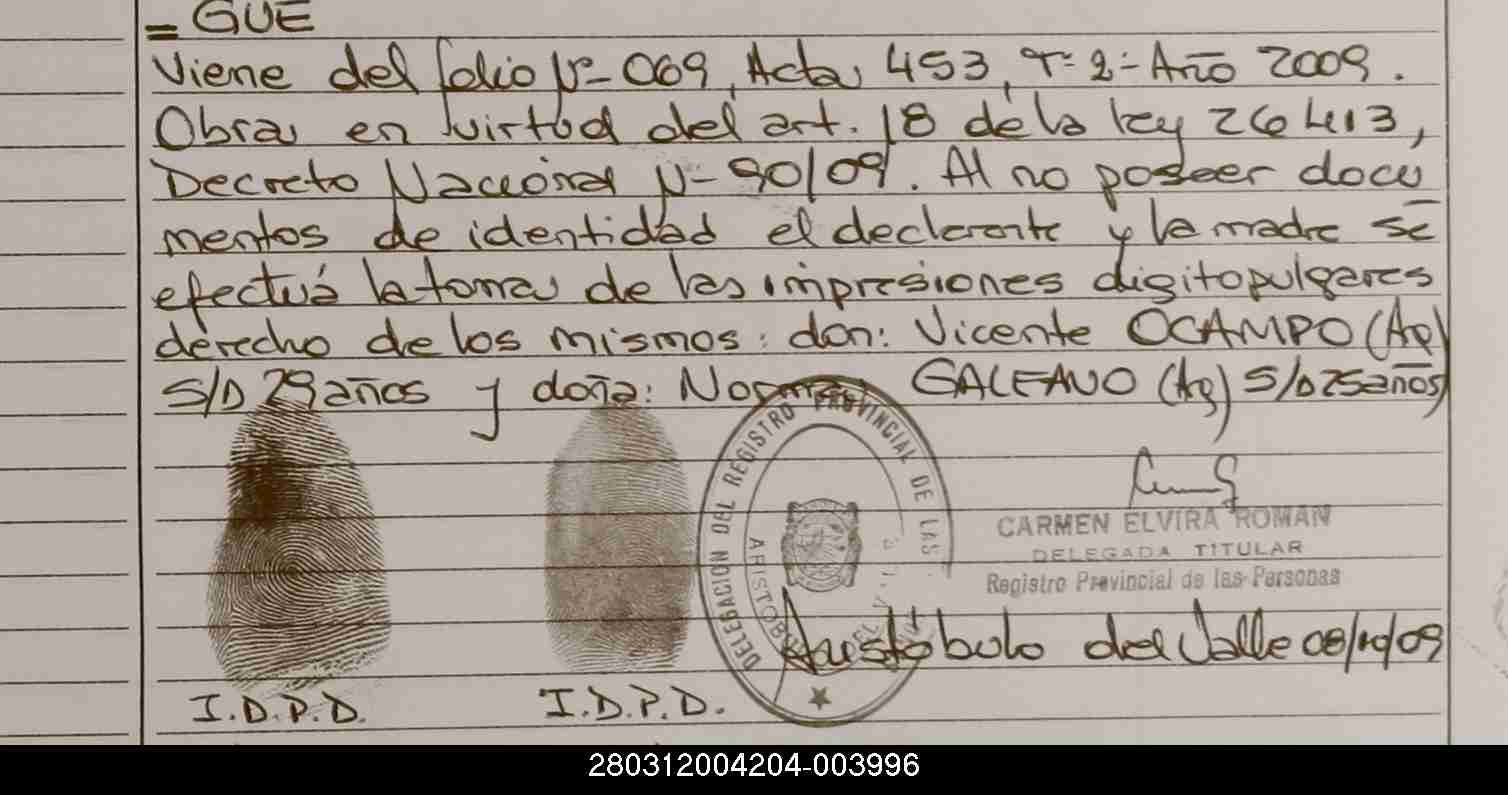 = GUE
Viene del folio Nº 069, Acta 453, Tº 2º Año 2009.
Obra en virtud del art. 18 de la ley 26413,
Decreto Nacional Nº 90/09. Al no poseer docu
mentos de identidad el declarante y la madre se
efectuá la toma de las impresiones digitopulgares
derecho de los mismos: don: Vicente OCAMPO (Ag)
S/D 29 años y doña: Norma GALEANO (Ag) S/D 25 años
DELEGACION DEL REGISTRO PROVINCIAL DE LAS
CARMEN ELVIRA ROMAN
DELEGADA TITULAR
Registro Provincial de las Personas
Aristóbulo del Valle 08/10/09
I.D.P.D. I.D.P.D.
280312004204-003996